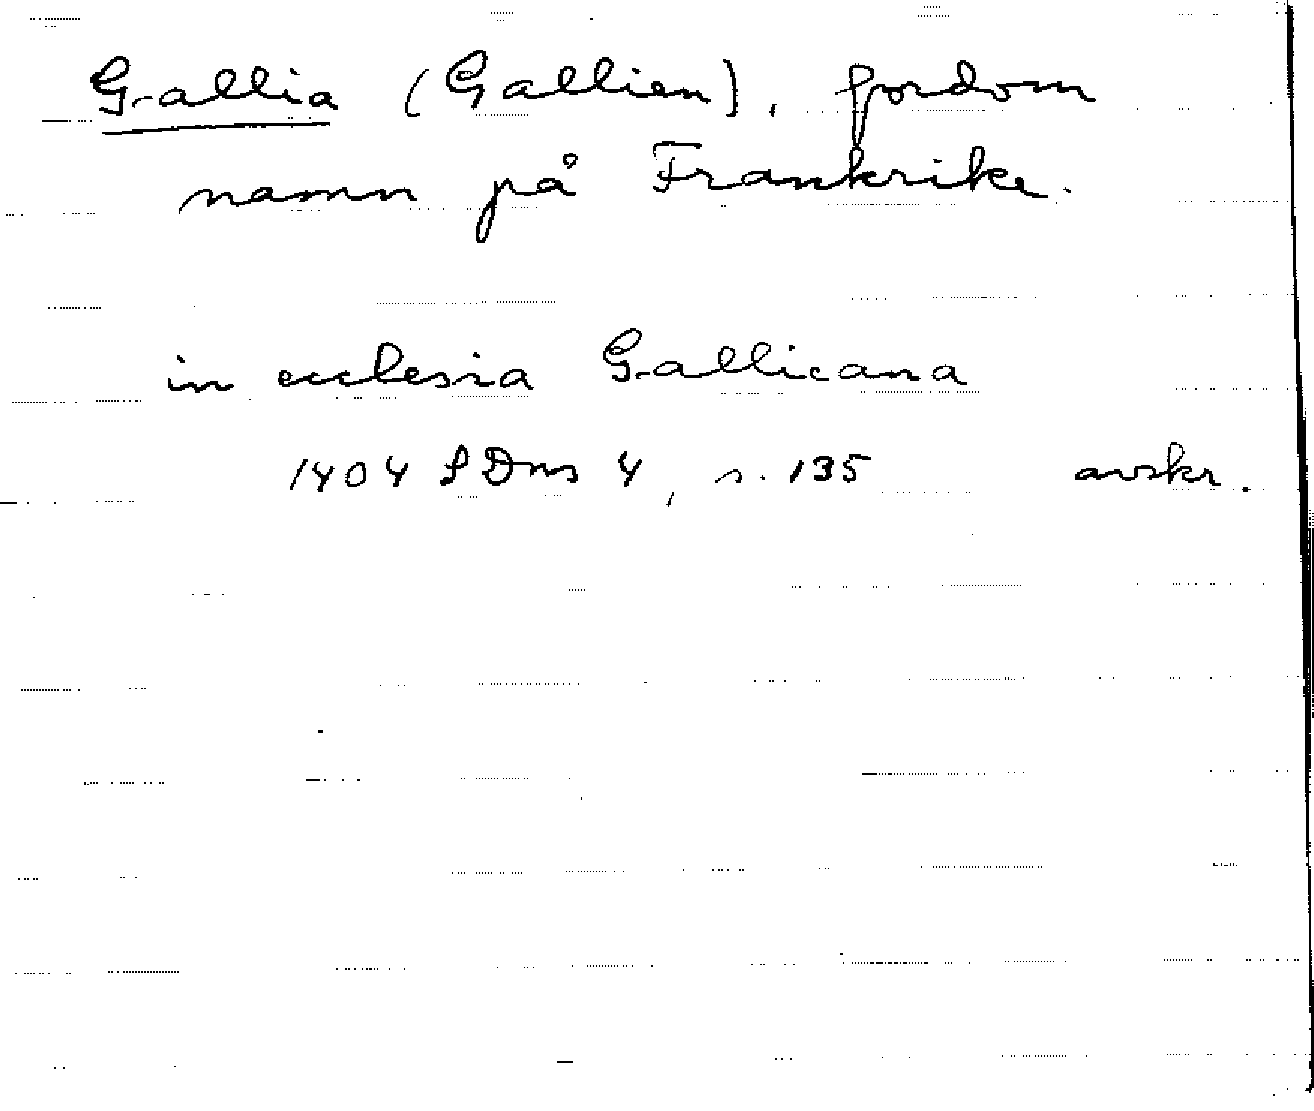 Gallia (Gallien), fordom
namn på Frankrike.
in ecclesia Gallicana
1404 SDns 4, s. 135 avskr.